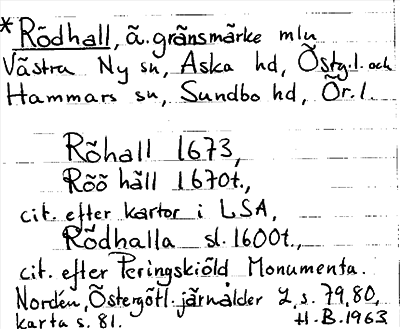 *Rödhall, ä. gränsmärke mln
Västra Ny sn, Aska hd, Östg.l. och
Hammars sn, Sundbo hd, Ör.l.
Röhall 1673,
Röö håll 1670t.,
cit. efter kartor i LSA,
Rödhalla sl. 1600t.,
cit. efter Peringskiöld Monumenta.
Nordén, Östergötl. järnålder 2, s. 79, 80,
karta s. 81. H.B. 1963